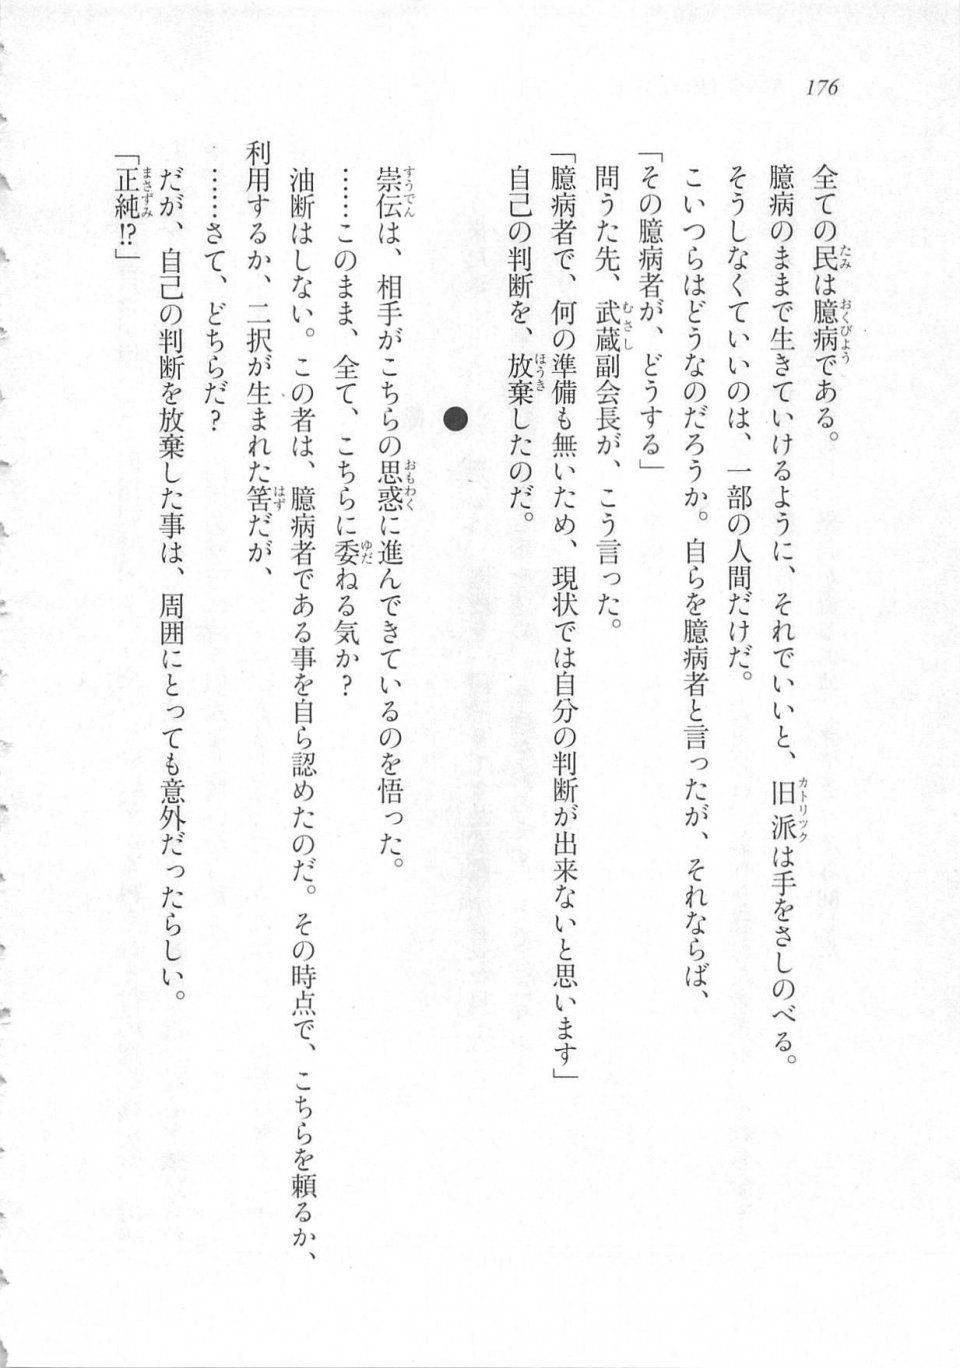 176
全ての民は臆病である。
臆病のままで生きていけるように、それでいいと、旧派は手をさしのべる。
そうしなくていいのは、一部の人間だけだ。
こいつらはどうなのだろうか。自らを臆病者と言ったが、それならば、
「その臆病者が、どうする」
問うた先、武蔵副会長が、こう言った。
「臆病者で、何の準備も無いため、現状では自分の判断が出来ないと思います」
自己の判断を、放棄したのだ。
●
崇伝は、相手がこちらの思惑に進んできているのを悟った。
……このまま、全て、こちらに委ねる気か？
油断はしない。この者は、臆病者である事を自ら認めたのだ。その時点で、こちらを頼るか、
利用するか、二択が生まれた筈だが、
……さて、どちらだ？
だが、自己の判断を放棄した事は、周囲にとっても意外だったらしい。
「正純!?」